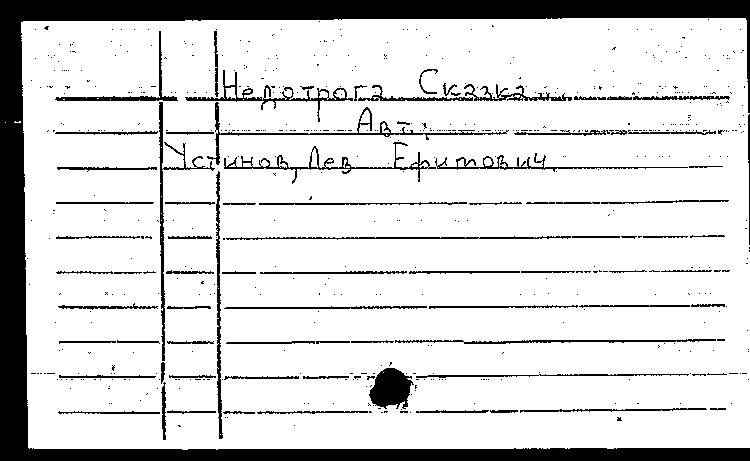 Недотрога. Сказка...
Авт.:
Устинов, Лев Ефимович.